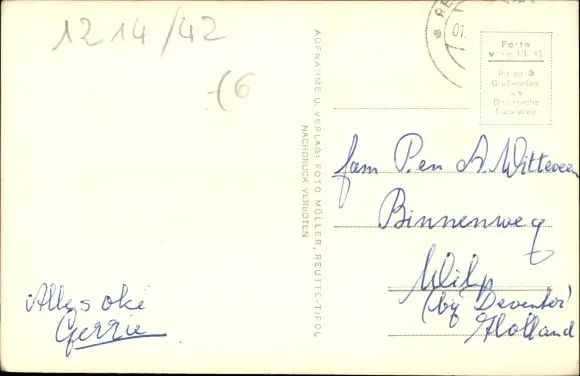 1214/42
(6
Alles oké
Gerrie
AUFNAHME U. VERLAG: FOTO MÜLLER, REUTTE-TIROL
NACHDRUCK VERBOTEN
RE
01.
Porto
Bis zu 5
Grußworten
als
Drucksache
frankieren
fam P. en A. Witteveen
Binnenweg
Wilp
(by Deventer)
Holland